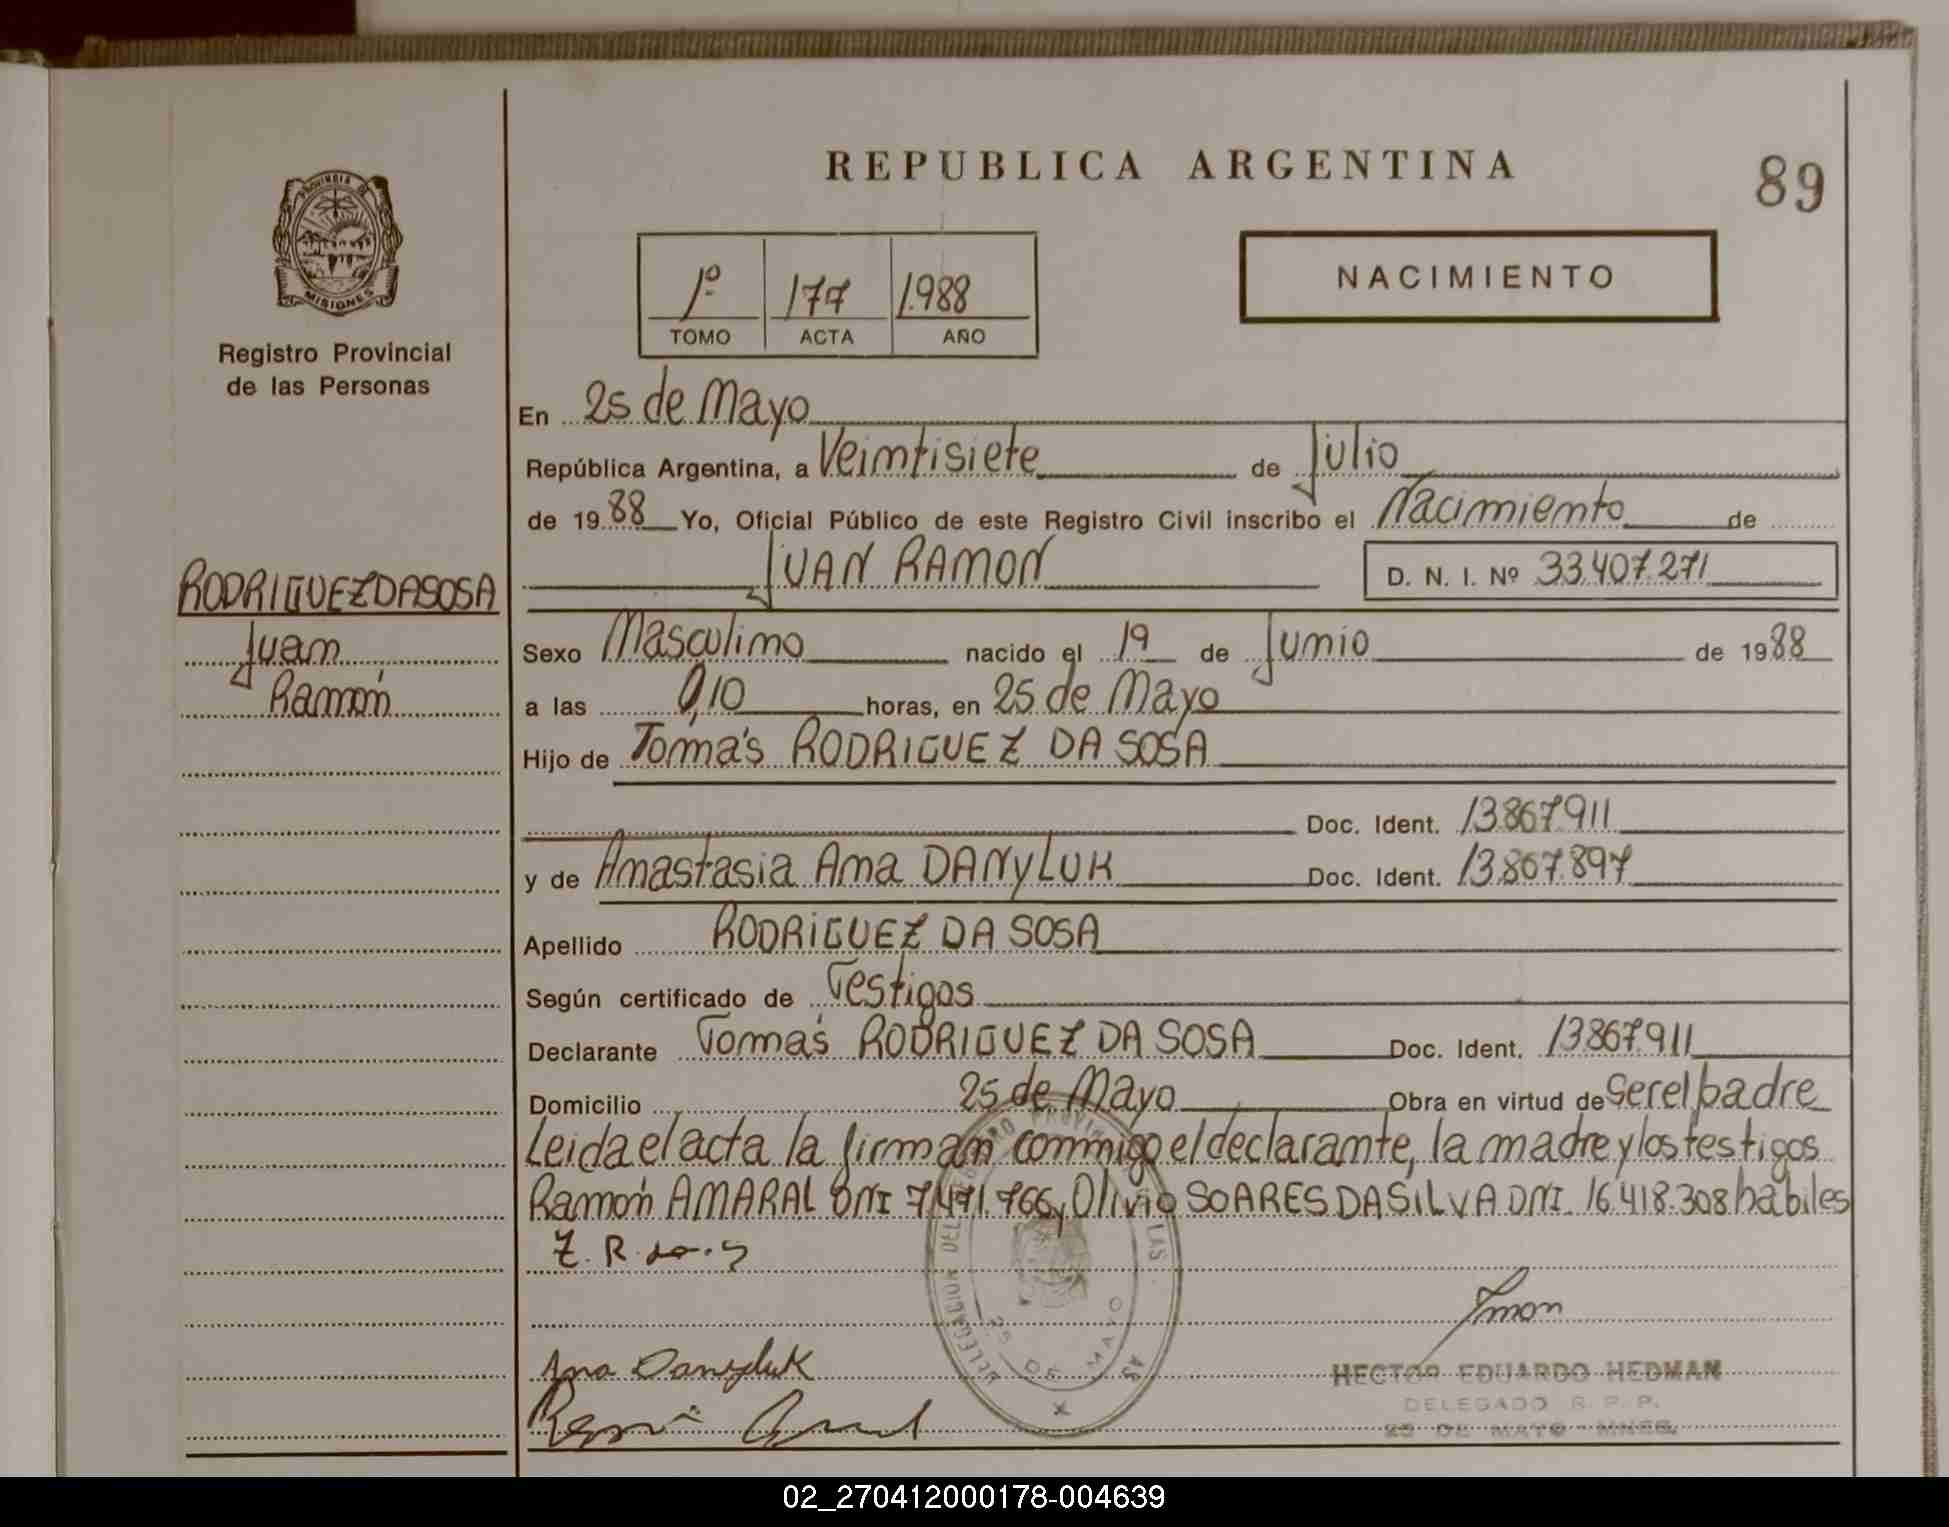 REPUBLICA ARGENTINA
89
PROVINCIA DE
MISIONES
Registro Provincial
de las Personas
1º 177 1.988
TOMO ACTA AÑO
NACIMIENTO
En 25 de Mayo
República Argentina, a Veintisiete de Julio
de 1988 Yo, Oficial Público de este Registro Civil inscribo el Nacimiento de
JUAN RAMON D. N. I. Nº 33.407.271
RODRIGUEZ DA SOSA
Juan
Ramón
Sexo Masculino nacido el 19 de Junio de 1988
a las 0,10 horas, en 25 de Mayo
Hijo de Tomás RODRIGUEZ DA SOSA
Doc. Ident. 13.867.911
y de Anastasia Ana DANYLUK Doc. Ident. 13.867.897
Apellido RODRIGUEZ DA SOSA
Según certificado de Testigos
Declarante Tomás RODRIGUEZ DA SOSA Doc. Ident. 13.867.911
Domicilio 25 de Mayo Obra en virtud de ser el padre
Leida el acta la firman conmigo el declarante, la madre y los testigos
Ramón AMARAL DNI 7.471.766 y Olivio SOARES DA SILVA DNI 16.418.308 habiles
Ana Danyluk
HECTOR EDUARDO HEDMAN
DELEGADO R. P. P.
25 DE MAYO - MNES.
25 DE MAYO
02_270412000178-004639